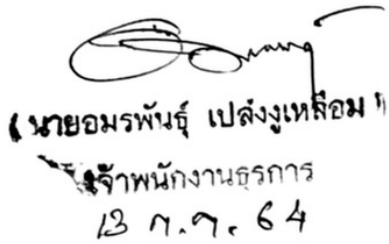 (นายอมรพันธุ์ เปล่งงูเหลือม)
เจ้าพนักงานธุรการ
13 ก.ค. 64